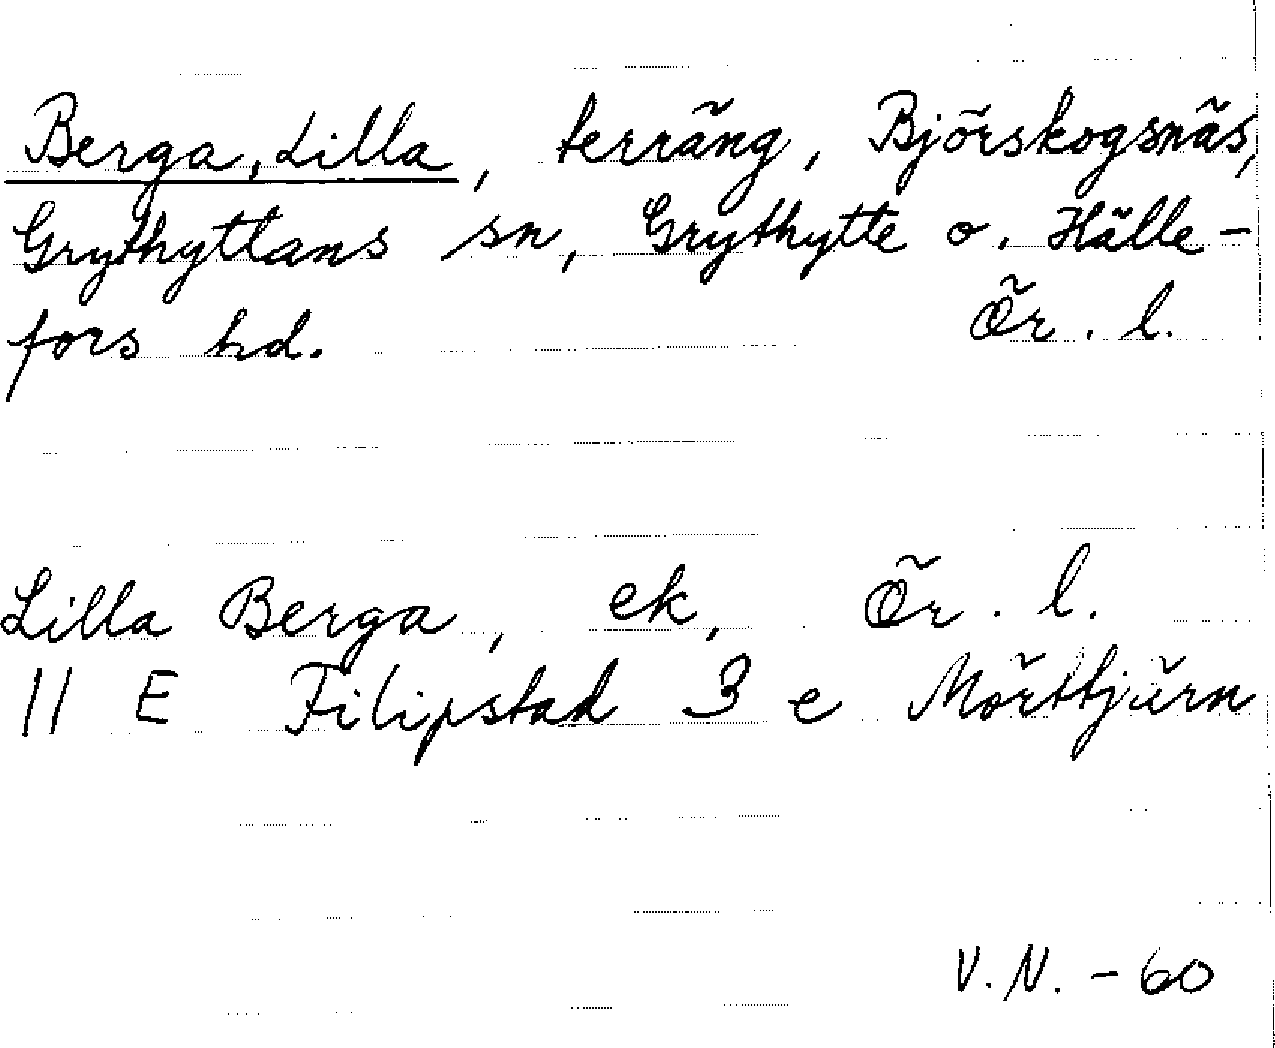 Berga, Lilla, terräng, Björskogsnäs,
Grythyttans sn, Grythytte o. Hälle-
fors hd. Ör. l.
Lilla Berga, ek, Ör. l.
11 E Filipstad 3 e Mörttjärn
V.N. - 60